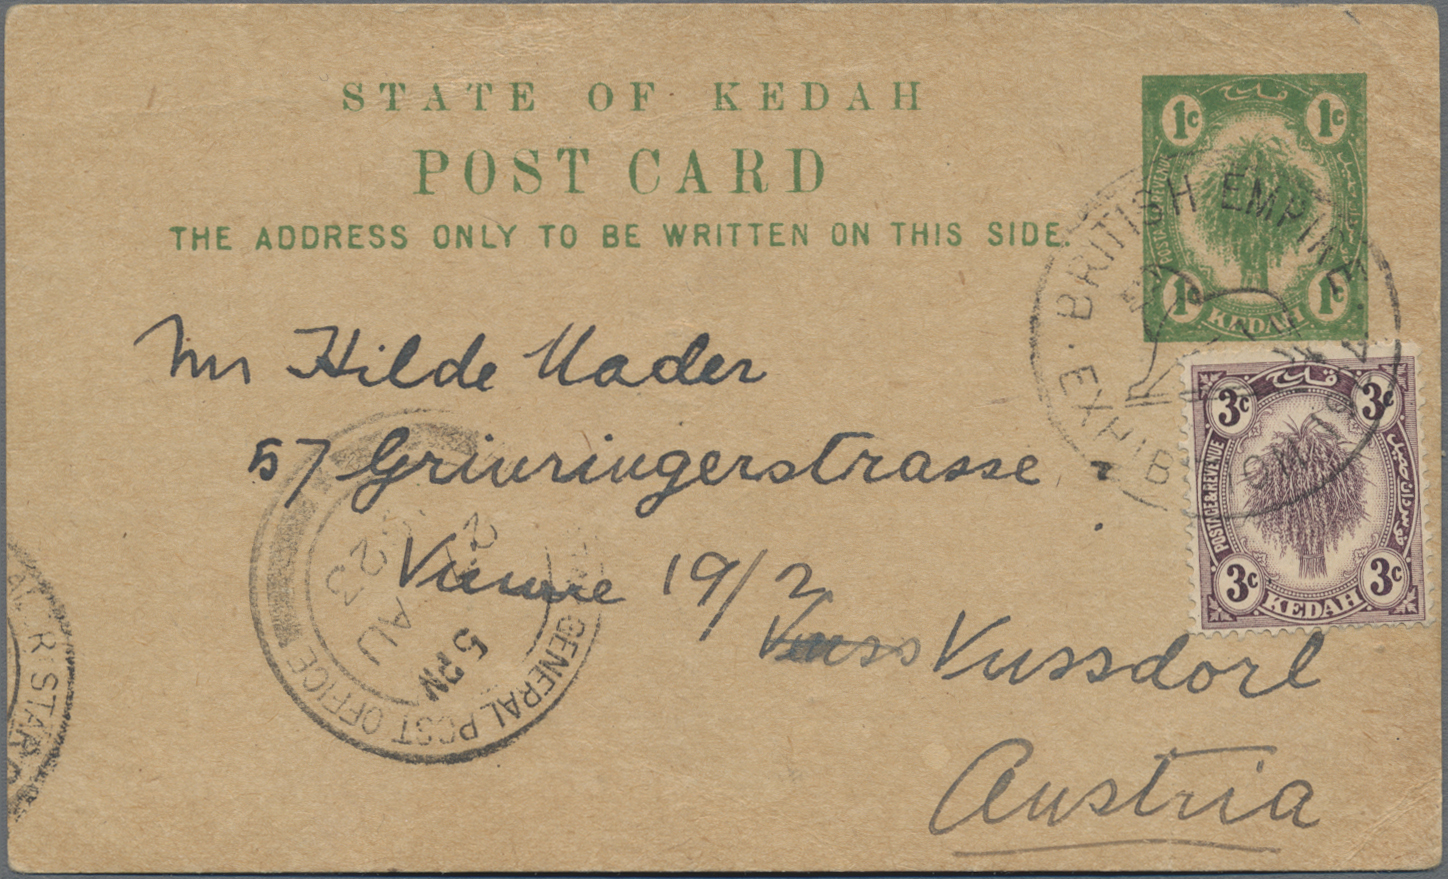 STATE OF KEDAH
POST CARD
THE ADDRESS ONLY TO BE WRITTEN ON THIS SIDE.
1c 1c
POSTAGE & REVENUE
1c 1c
KEDAH
BRITISH EMPIRE
EXHIB
3c 3c
POSTAGE & REVENUE
3c 3c
KEDAH
Hilde Mader
57 Grinzingerstrasse
19/2
Nussdorf
Austria
GENERAL POST OFFICE
5 PM
AU
23
R STAR